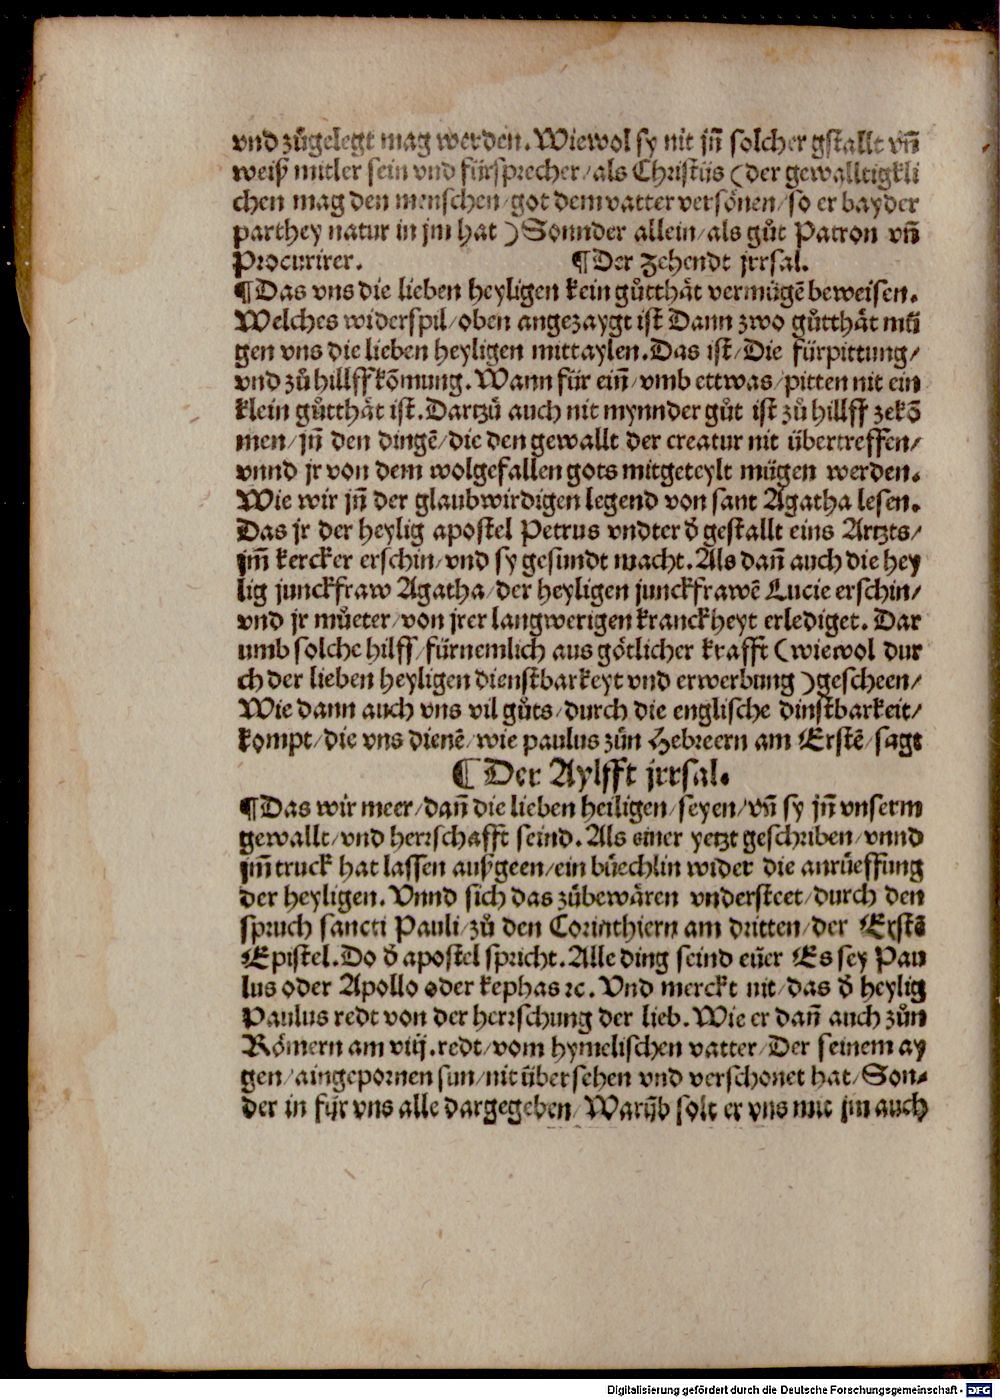 vnd zůgelegt mag werden. Wiewol sy nit jñ solcher gstallt vñ
weiß mitler sein vnd fürsprecher/als Christůs (der gewalltigkli
chen mag den menschen/got dem vatter versönen/so er bayder
parthey natur in jm hat) Sonnder allein/als gůt Patron vñ
Procurirer. ¶ Der Zehendt jrrsal.
¶ Das vns die lieben heyligen kein gůtthåt vermügē beweisen.
Welches widerspil/oben angezaygt ist Dann zwo gůtthåt mü
gen vns die lieben heyligen mittaylen. Das ist/Die fürpittung/
vnd zů hillff kõmung. Wann für eiñ/vmb ettwas/pitten nit ein
klein gůtthåt ist. Dartzů auch nit mynnder gůt ist zů hillff zekõ
men/jñ den dingē/die den gewallt der creatur nit übertreffen/
vnnd jr von dem wolgefallen gots mitgeteylt mügen werden.
Wie wir jñ der glaubwirdigen legend von sant Agatha lesen.
Das jr der heylig apostel Petrus vndter d̄ gestallt eins Artzts/
jm̃ kercker erschin/vnd sy gesundt macht. Als dañ auch die hey
lig junckfraw Agatha/der heyligen junckfrawē Lucie erschin/
vnd jr můeter/von jrer langwerigen kranckheyt erlediget. Dar
umb solche hilff/fürnemlich aus götlicher krafft (wiewol dur
ch der lieben heyligen dienstbarkeyt vnd erwerbung) gescheen/
Wie dann auch vns vil gůts/durch die englische dinstbarkeit/
kompt/die vns dienē/wie paulus zůn Hebreern am Erstē/sagt
¶ Der Aylfft jrrsal.
¶ Das wir meer/dañ die lieben heiligen/seyen/vñ sy jñ vnserm
gewallt/vnd herrschafft seind. Als einer yetzt geschriben/vnnd
jm̃ truck hat lassen außgeen/ein büechlin wider die anrüeffung
der heyligen. Vnnd sich das zůbewåren vndersteet/durch den
spruch sancti Pauli/zů den Corinthiern am dritten/der Erstē
Epistel. Do d̄ apostel spricht. Alle ding seind eüer Es sey Pau
lus oder Apollo oder kephas ꝛc. Vnd merckt nit/das d̄ heylig
Paulus redt von der herrschung der lieb. Wie er dañ auch zůn
Römern am viij. redt/vom hymelischen vatter/Der seinem ay
gen/aingepornen sun/nit übersehen vnd verschonet hat/Son-
der in für vns alle dargegeben/Warūb solt er vns mit jm auch
Digitalisierung gefördert durch die Deutsche Forschungsgemeinschaft - DFG